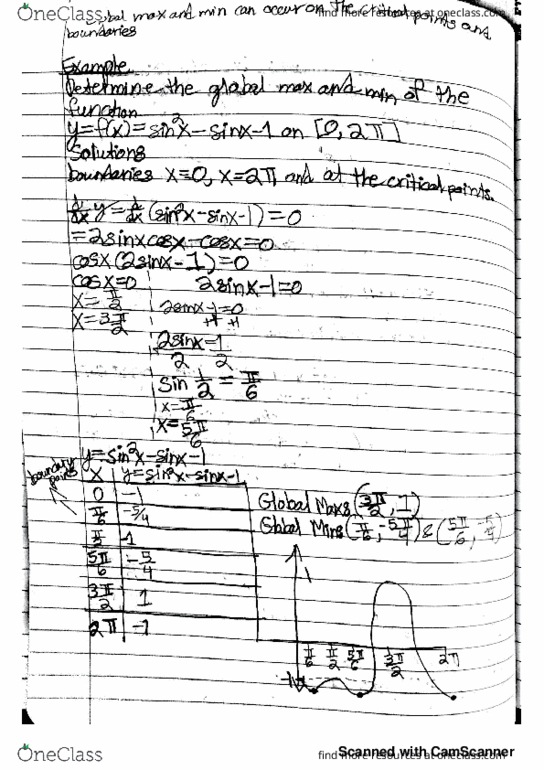 OneClass
find more resources at oneclass.com
global max and min can occur on the critical points and
boundaries
Example
Determine the global max and min of the
function
y=f(x)=sin²x-sinx-1 on [0, 2π]
Solutions
boundaries x=0, x=2π and at the critical points.
d/dx y = d/dx (sin²x-sinx-1)=0
=2sinxcosx-cosx=0
cosx(2sinx-1)=0
cosx=0 2sinx-1=0
x=π/2 2sinx-1=0
x=3π/2 +1 +1
2sinx=1
2 2
sin 1/2 = π/6
x=π/6
x=5π/6
y=sin²x-sinx-1
boundary points
x y=sin²x-sinx-1
0 -1
π/6 -5/4
π/2 -1
5π/6 -5/4
3π/2 1
2π -1
Global Max: (3π/2, 1)
Global Min: (π/6, -5π/4) & (5π/6, -5/4)
1
π/6 π/2 5π/6 3π/2 2π
-1
OneClass
find more resources at oneclass.com
Scanned with CamScanner